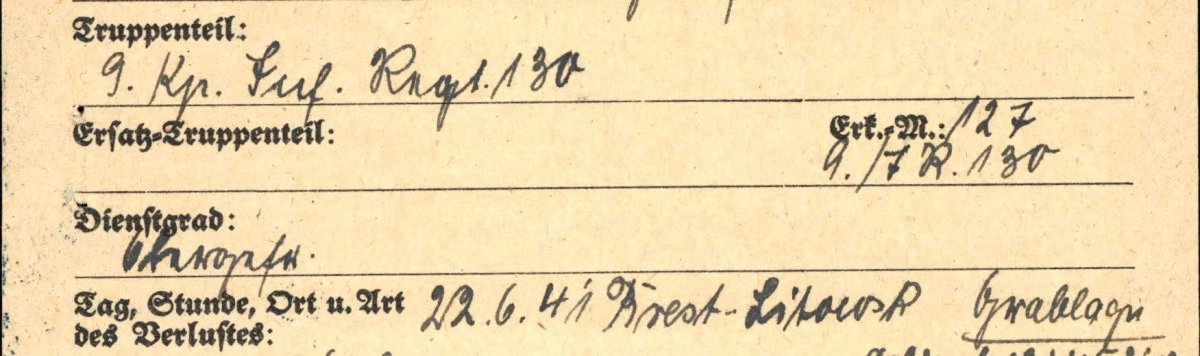 Truppenteil:
9. Kp. Inf. Regt. 130
Ersatz-Truppenteil:
Erk.-M.: 127
9./I R. 130
Dienstgrad:
Obergefr.
Tag, Stunde, Ort u. Art 22.6.41 Brest-Litowsk Grablage
des Verlustes: